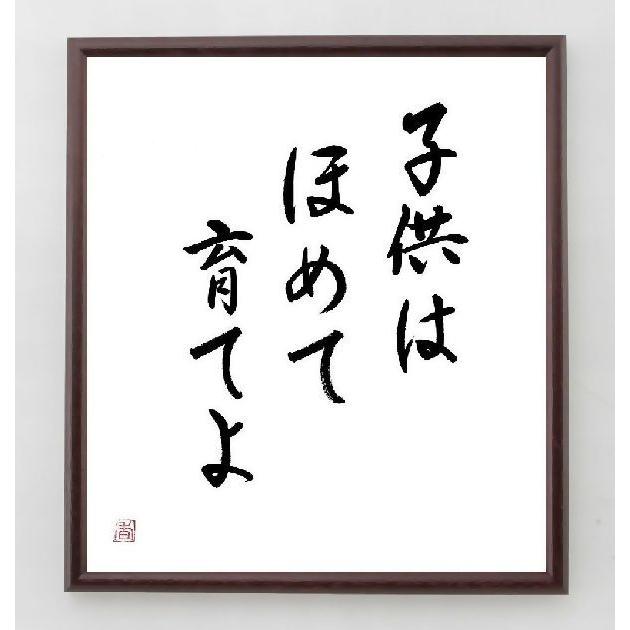 子供は
ほめて
育てよ